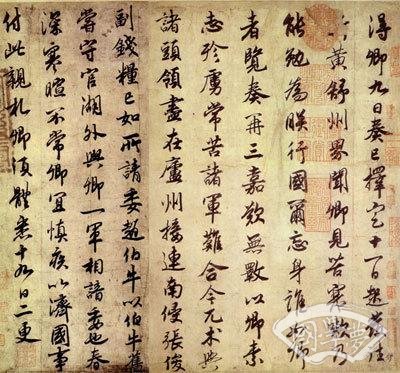 得卿九日奏已擇定十一日起發往
蘄黃舒州界聞卿見苦寒嗽乃
能勉為朕行國爾忘身誰如卿
者覽奏再三嘉歎無斁以卿素
志殄虜常苦諸軍難合今兀术與
諸頭領盡在廬州接連南侵張俊
副錢糧已如所請委趙伯牛以伯牛舊
嘗守官湖外與卿一軍相諳委也春
深寒暄不常卿宜慎疾以濟國事
付此親札卿須體悉十九日二更
國學夢